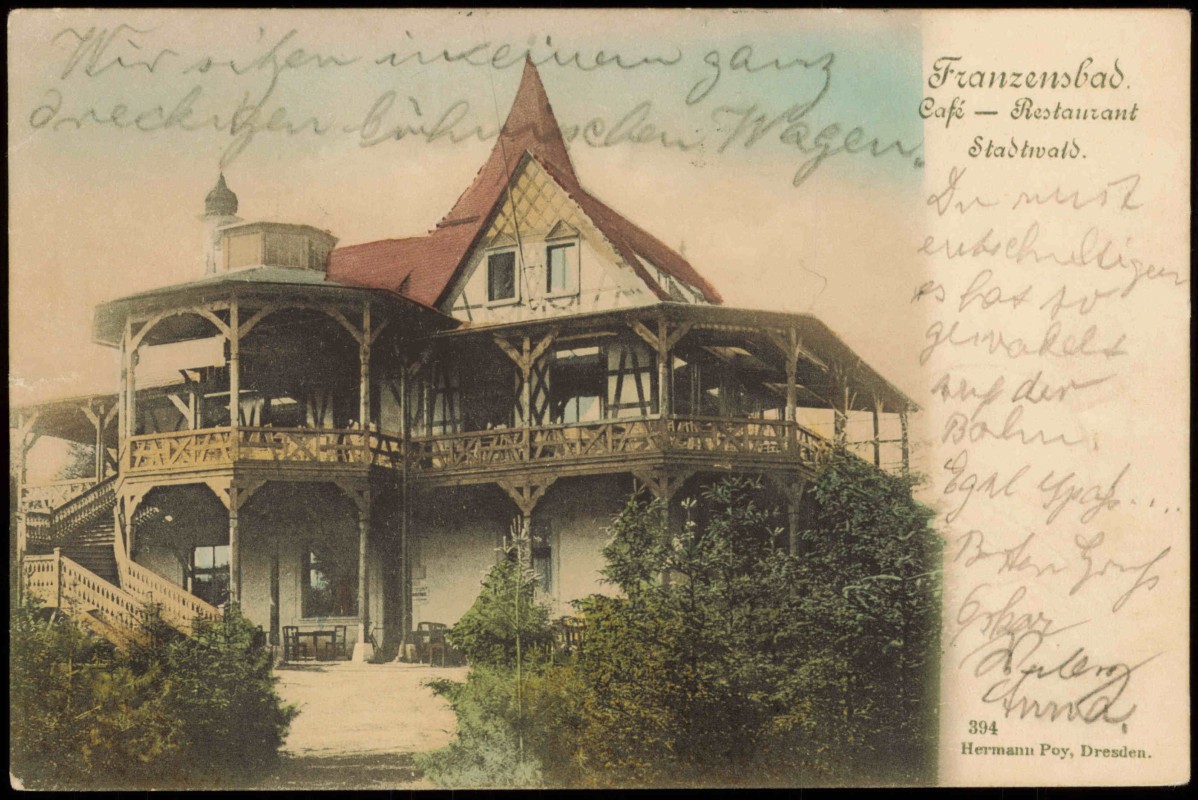 Wir sitzen in einem ganz
dreckigen böhmischen Wagen.
Franzensbad.
Café — Restaurant
Stadtwald.
Du must
entschuldigen
es hat so
gewakelt
auf der
Bahn
Egal Spaß...
Besten Gruß
Oskar
Anna.
394
Hermann Poy, Dresden.